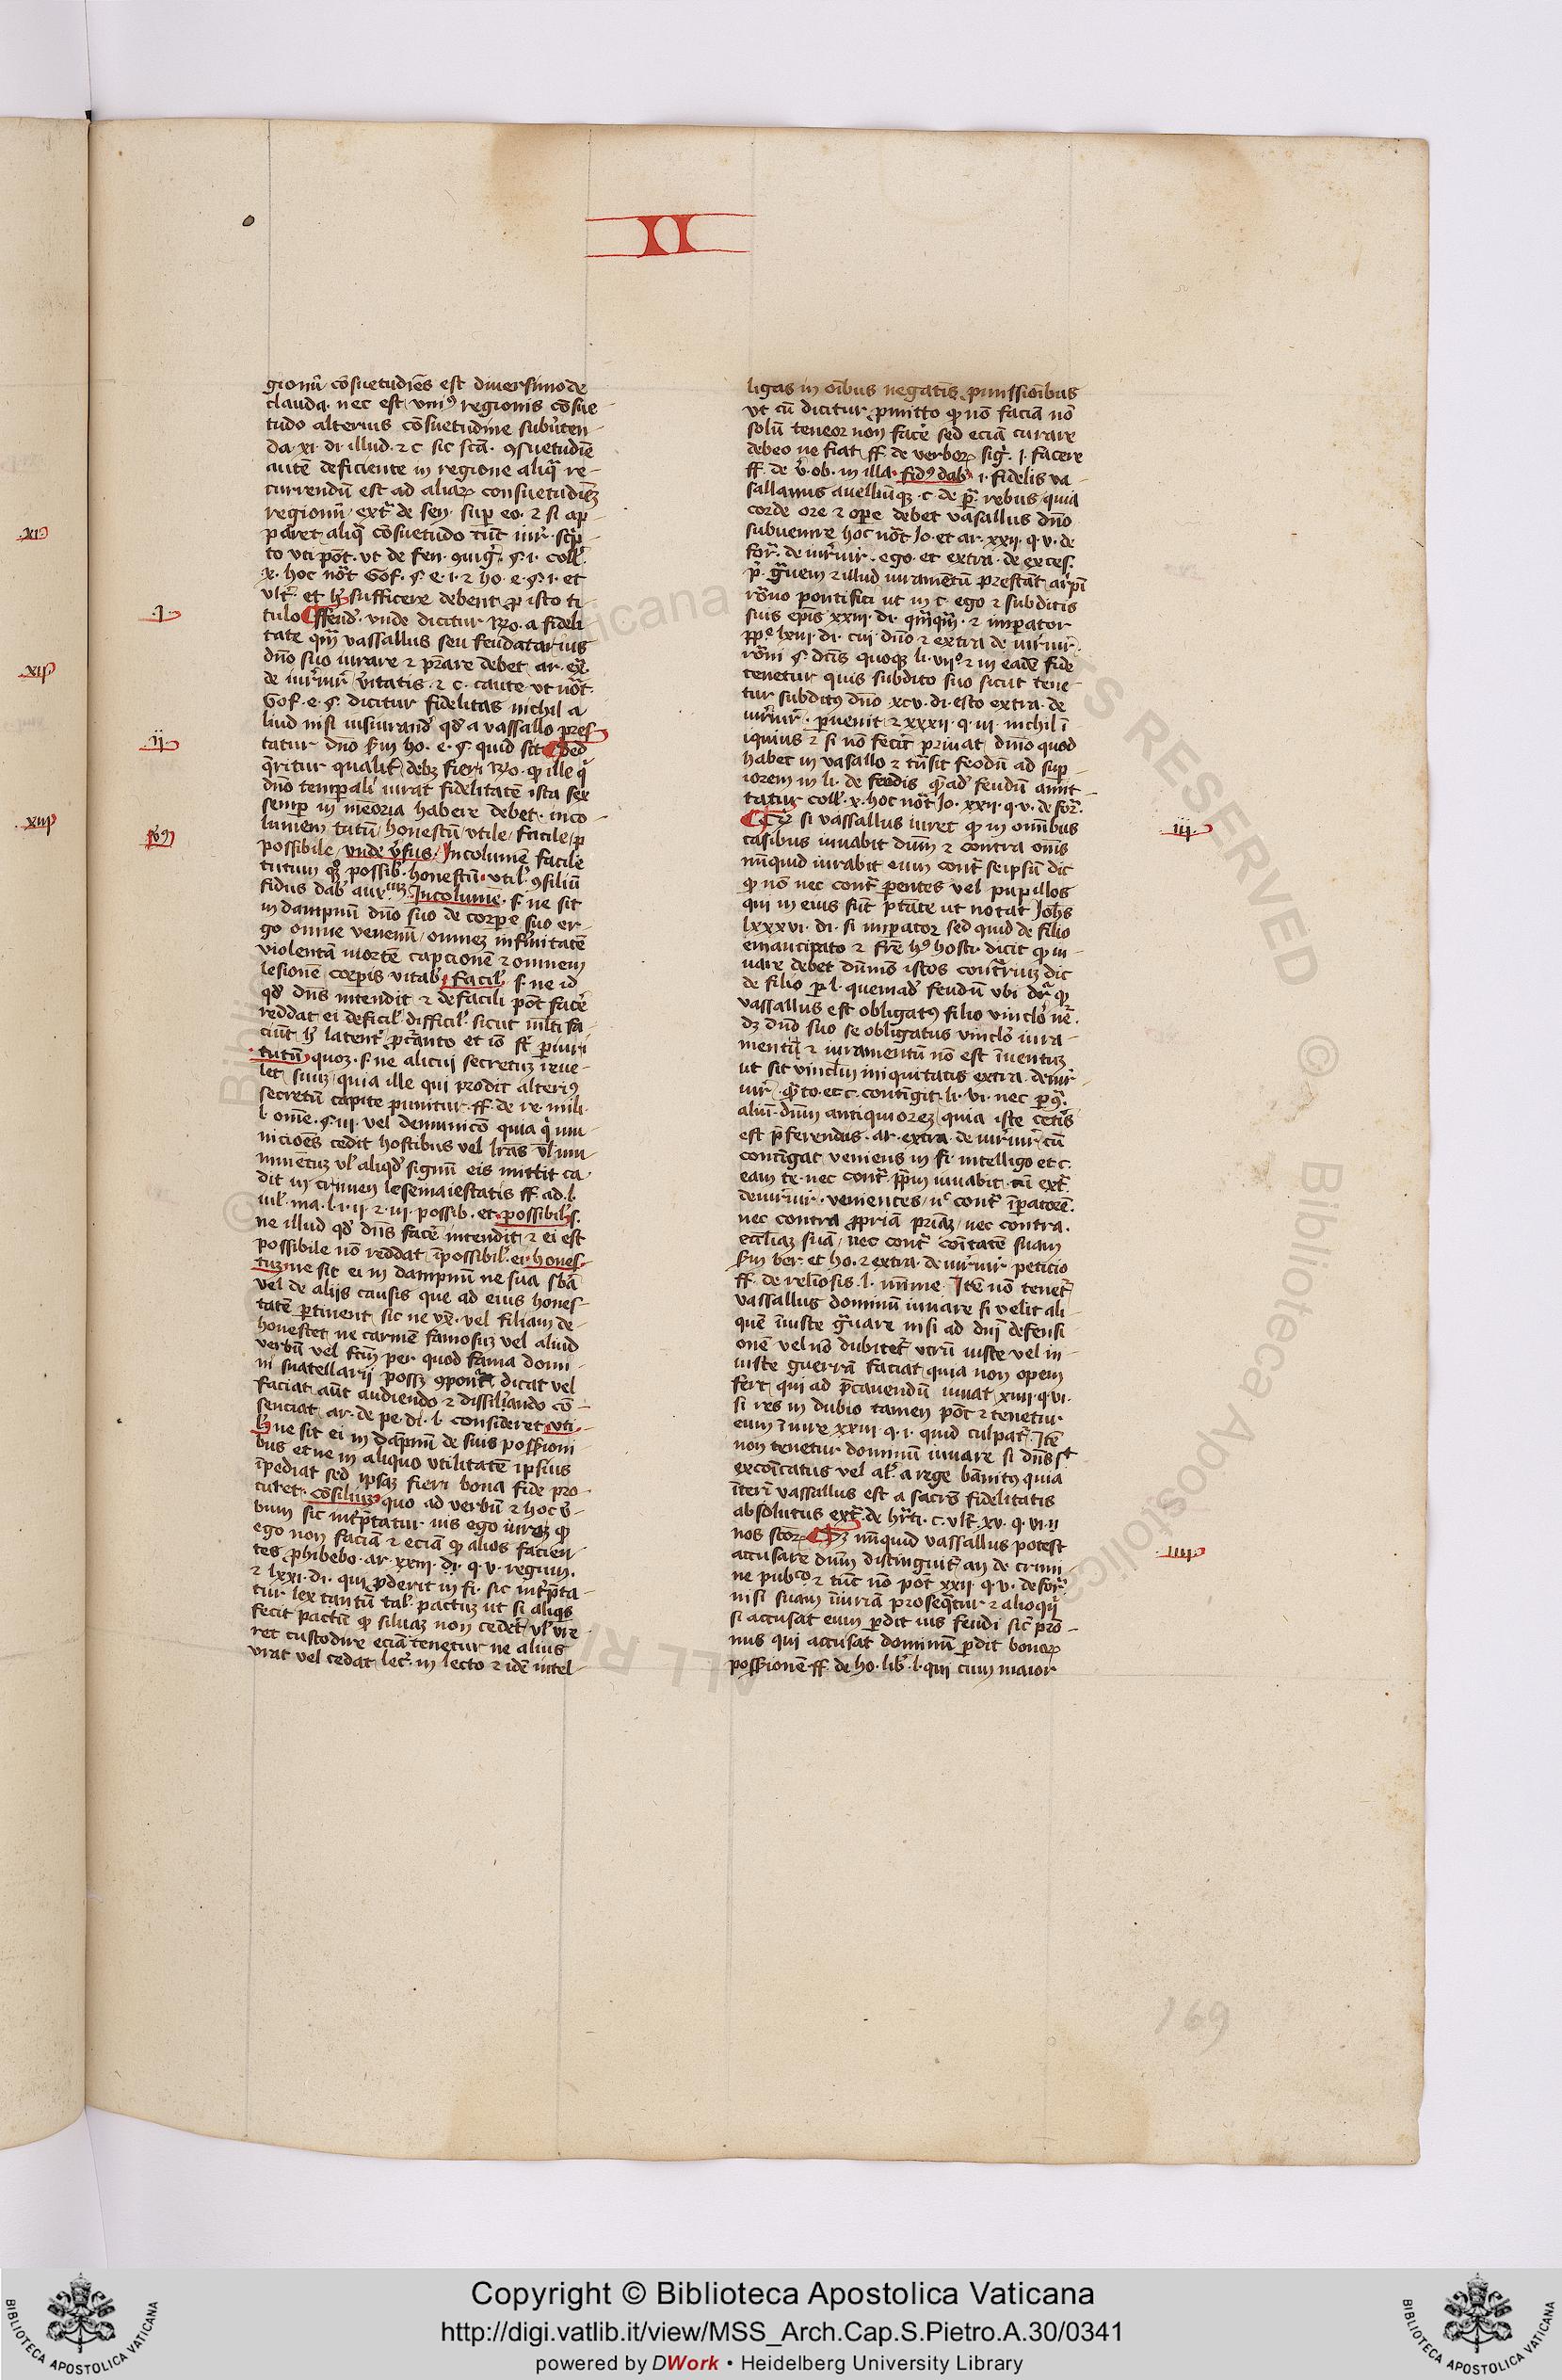 II
gionū cōsuetudīes est diuersimode
clauda. nec est vniꝰ regionis cōsue
tudo alterius cōsuetudine subuerten-
da xi. di. illud. ⁊ c. sic scā. ꝯsuetudīe
autē deficiente in regione aliq̄ re-
currendū est ad aliaꝝ consuetudīez
regionū extͣ de sen. suꝑ eo. ⁊ si ap-
paret aliq̄ cōsuetudo tūc iur̄. scrip
to vti pōt. vt de feu.
x. hoc nōt Gof. §. e. i. ⁊ ho. e. §. i. et
vlt. et sufficere debent ꝓ isto ti-
tulo vnde dicitur Ro. a fideli
tate qm̄ vassallus seu feudatarius
dn̄o suo iurare ⁊ p̄stare debet ar. ex̄.
de iur̄iur̄ v̄itatis. ⁊ c. caute. vt nōt.
Gof. e. §. dicitur fidelitas nichil a
liud nisi iusiurand̄ qd̄ a vassallo pres
tatur dn̄o sm̄ ho. e. §. quid sit Sed
q̄ritur qualit̄ debꝫ fieri Ro. ꝙ ille q̄
dn̄o temp̄ali iurat fidelitatē ista sex
semꝑ in meōria habere debet. inco
lumem tutū honestū vtile facile ꝑ
possibile vnde v̄sus Incolumē facile
tutum possib̄. honestū. vtil̄. ꝯsiliū
fidus dab̄ aux Incolumē. s. ne sit
in dampnū dn̄o suo de corꝑe suo er-
go omne venenū omnez infirmitatē
violentā mortē capcionē ⁊ omnem
lesionē corꝑis vitab̄ facil̄ s. ne id
qd̄ dn̄s intendit ⁊ defacili pōt facē
reddat ei deficil̄ difficil̄. sicut ml̄ti fa-
ciūt et iō st̄ ꝑiuri
tutū quoz. s. ne alicui secretuz reue-
let suuz quia ille qui prodit alteriꝰ
secretū capite punitur. ff. de re. mili.
l. om̄e. §. iii. vel demunicō quia q̄ mu
niciōes cedit hostibus vel lrās vl̄ mu
nimētuz vl̄ aliqd̄ signū eis mittit ca
dit in crimen lesemaiestatis ff. ad. l.
iul̄. ma. l. i. ii. ⁊ iii. possib. et possibil̄. s.
ne illud qd̄ dn̄s facē intendit ⁊ ei est
possibile nō reddat īpossibil̄. ei. hones-
tuz. ne sit ei in dampnū ne sua
vel de alijs causis que ad eius hones-
tatē ꝑtinent sic ne vx̄. vel filiam de-
honestet ne carmē famosuz vel aliud
verbū vel fc̄m per quod fama domi-
ni suatellarij possꝫ dicat vel
faciat aūt audiendo ⁊ dissil̄ando cō-
senciat ar. de pe. di. l. consideret vti
ne sit ei in dāpnū de suis possioni
bus et ne in aliquo utilitatē ipsius
īpediat sed ipsaz fieri bona fide pro
curet. cōsiliuz quo ad verbū ⁊ hoc v̄-
bum sic int̄p̄tatur ius ego iuro ꝙ
ego non faciā ⁊ eciā ꝙ alios facien
tes ꝓhibebo. ar. xxiii. di. q. v. regum.
⁊ lxxi. di. qui ꝓderit in fi. sic int̄p̄ta-
tur lex tantū tal̄. pactuz ut si aliq̄s
fecit pactū ꝙ siluaz non cedet vl̄ vre
ret custodire eciā tenetur ne alius
vrat vel cedat lec̄. in lecto ⁊ idē intel-
ligas in oībus negatīs ꝓmissiōibus
vt cū dicitur ꝓmitto ꝙ nō faciā nō
solū teneor non facē sed eciā curare
debeo ne fiat ff. de verboꝝ siḡ. l. facere
ff. de v̄. ob. in illa. fidꝰ dab̄ i. fidelis va-
sallamus c. de p̄. rebus quia
corde ore ⁊ oꝑe debet vasallus dn̄o
subuenire hoc nōt Jo. et ar. xxii. q. v. de
for̄. de iur̄iur̄. ego. et extra. de exces.
p̄. g̈uem ⁊ illud iuramētū prestat
rōano pontifici ut in c. ego ⁊ subditis
suis ep̄is xxiii. di. qm̄qm̄. ⁊ imꝑator
pp̄e lxiii. di. cui dn̄o ⁊ extra de iur̄iur̄.
rōani §. dc̄is quoque li. vii ⁊ in eadē fide
tenetur quis subdito suo sicut tene-
tur subditꝰ dn̄o xcv. di. esto extra. de
iur̄iur̄. ꝑuenit ⁊ xxxii. q. vi. nichil ī
iquius ⁊ si nō fecit priuat dn̄io quod
habet in vasallo ⁊ trāsit feodū ad suꝑ
iorem in li. de feodis q̄ ad feudū amit-
tatur coll̄. x. hoc nōt Jo. xxii. q. v. de for̄.
si vassallus iuret ꝙ in omībus
casibus iuuabit dn̄m ⁊ contra om̄is
nūquid iurabit eum cont̄ seipsū dic
ꝙ nō nec cont̄ parentes vel pupillos
qui in eius sūt ptāte ut notat Joh̄s
lxxxvi. di. si imꝑator sed quid de filio
emancipato ⁊ fr̄e hꝰ hosti. dicit ꝙ iu-
uare debet dn̄m istos cont̄riuz dic
de filio ꝑ l. quemad̄ feudū vbi dr̄ ꝙ
vassallus est obligatꝰ filio vinclo nē.
dꝫ dn̄o suo se obligatus vinclo iura-
mentū ⁊ iuramentū nō est īuentuz
ut sit vinclm̄ iniquitatis extra. de iur̄
iur̄. q̄to. et c. contīgit. li. vi. nec
aliū. dn̄m antiquiorez quia iste cetīs
est p̄ferendus. ar. extra. de iur̄iur̄. cū
contīgat veniens in fi. intelligo et c.
eam te. nec cont̄ pp̄m iuuabit. cū ext̄
de iur̄iur̄. venientes nec cont̄ īpatorē.
nec contra ꝓpriā priāz nec contra.
ecc̄liaz suā nec cont̄ cōitatē suam
sm̄ ber. et ho. ⁊ extra. de iur̄iur̄. peticio
ff. de religiosis. l. mīme. Itē nō tenet̄
vassallus dominū iuuare si velit ali-
quē īiuste g̈uare nisi ad dn̄i defensi
onē vel nō dubitet̄ vtrū iuste vel in-
iuste guerrā faciat quia non opem
fert qui ad p̄cauendū iuuat xiiii. q. vi.
si res in dubio tamen pōt ⁊ tenetur
eum īuure xxiii. q. i. quid culpat̄. Itē
non tenetur dominū iuuare si dn̄s st
excōicatus vel al̄. a rege bānitꝰ quia
īterī vassallus est a sacrō fidelitatis
absolutus ext̄. de hr̄ti. c. vlt̄. xv. q. vi. ii
nos scoꝝ. nūquid vassallus potest
accusare dn̄m distinguit̄ an de crimi-
ne pubᶜᵒ ⁊ tūc nō pōt xxii. q. v. de for̄.
nisi suam īiuriā proseq̄tur ⁊ alioqi
si accusat eum ꝑdit ius feudi sic pro-
nus qui accusat dominū ꝑdit bonoꝝ
possionē. ff. de ho. lib̄. l. qui cum maior
xi
xii
xiii
i.
ii
iii
iiii
169
Copyright © Biblioteca Apostolica Vaticana
http://digi.vatlib.it/view/MSS_Arch.Cap.S.Pietro.A.30/0341
powered by DWork • Heidelberg University Library
BIBLIOTECA APOSTOLICA VATICANA
BIBLIOTECA APOSTOLICA VATICANA